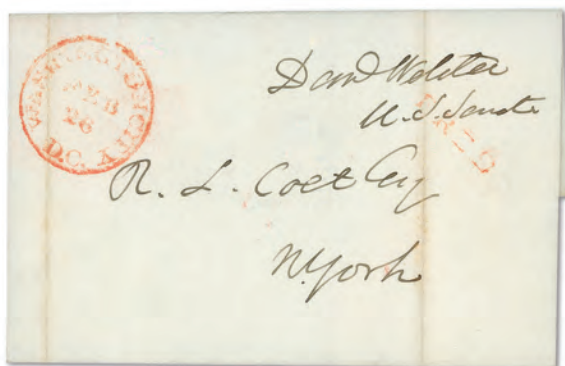 WASHINGTON CITY
D.C.
FEB
26
Danl Webster
U.S. Senate
FREE
R. L. Colt Esq
N. York